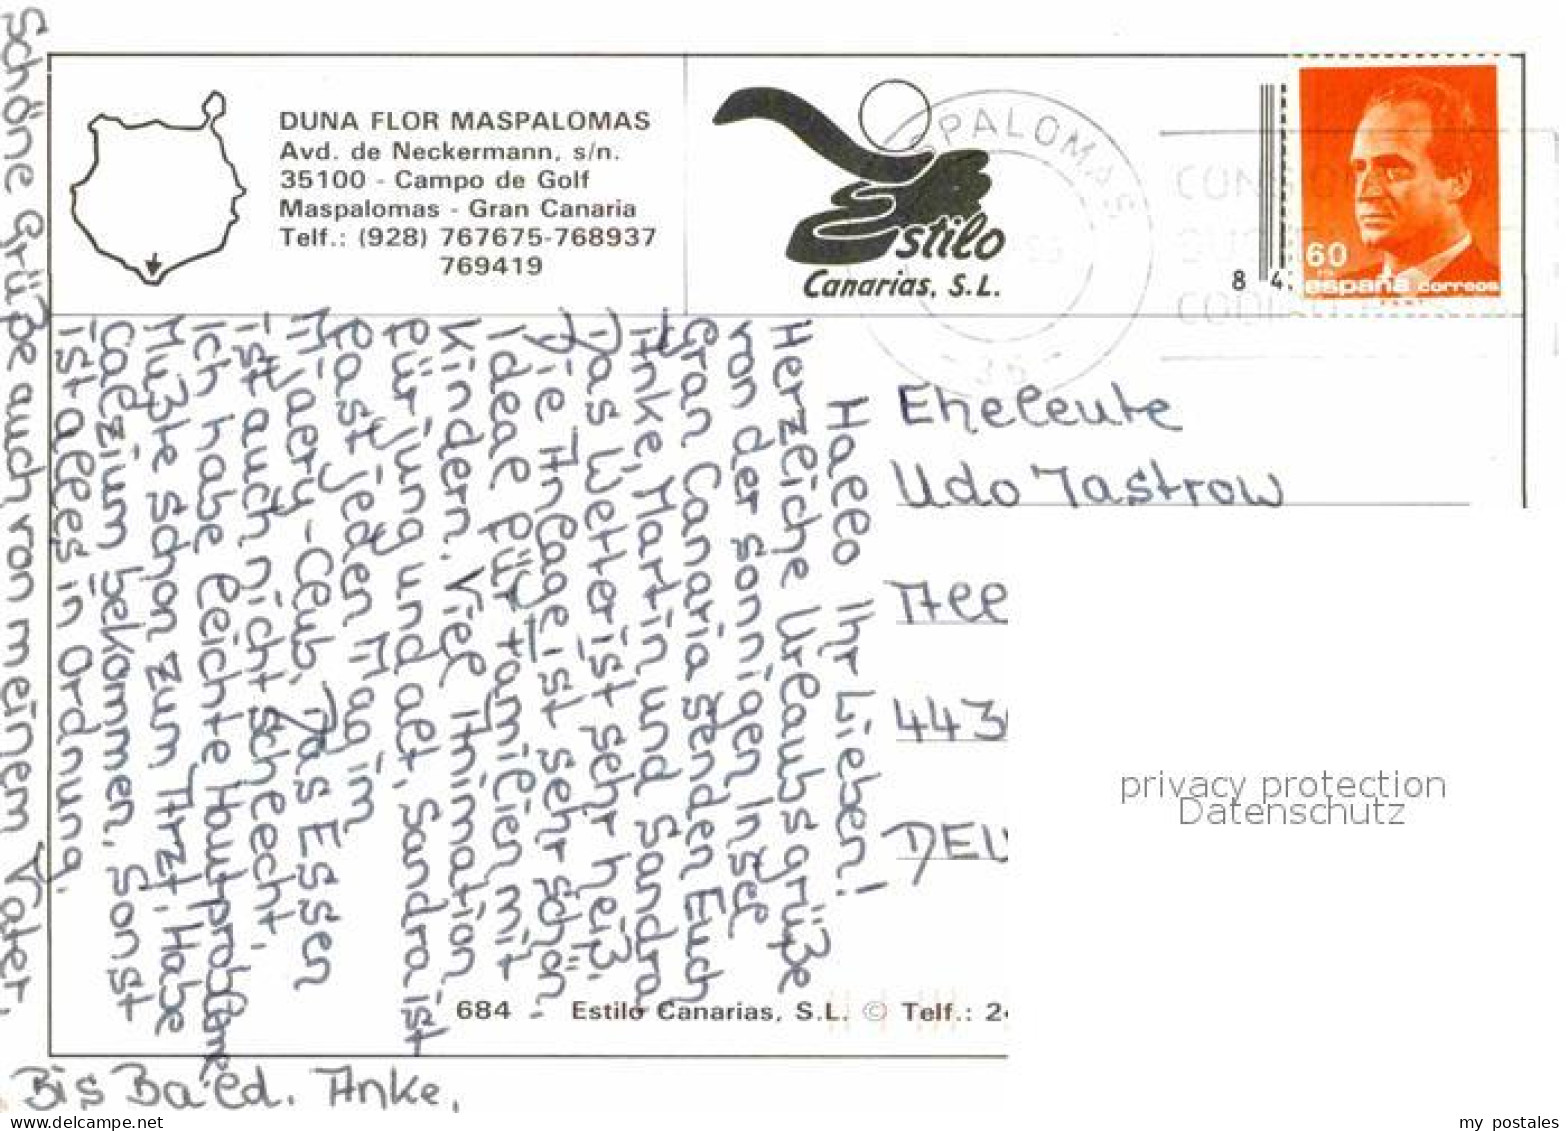 DUNA FLOR MASPALOMAS
Avd. de Neckermann, s/n.
35100 - Campo de Golf
Maspalomas - Gran Canaria
Telf.: (928) 767675-768937
769419
Estilo
Canarias, S.L.
PALOMAS
8 4
60
españa correos
Hallo Ihr Lieben!
Herzliche Urlaubsgrüße
von der sonnigen Insel
Gran Canaria senden Euch
Anke, Martin und Sandra
Das Wetter ist sehr heiß.
Die Anlage ist sehr schön.
Ideal für Familien mit
Kindern. Viel Animation
für Jung und alt, Sandra ist
fast jeden Mag im
Mivaery-Club. Das Essen
ist auch nicht schlecht.
Ich habe leichte Hautprobleme
Mußte schon zum Arzt. Habe
Calzium bekommen, Sonst
ist alles in Ordnung.
Schöne Grüße auch von meinem Vater.
Bis Bald. Anke.
Eheleute
Udo Jastrow
All
443
DEU
privacy protection
Datenschutz
684 Estilo Canarias, S.L. © Telf.: 2
www.delcampe.net
my_postales